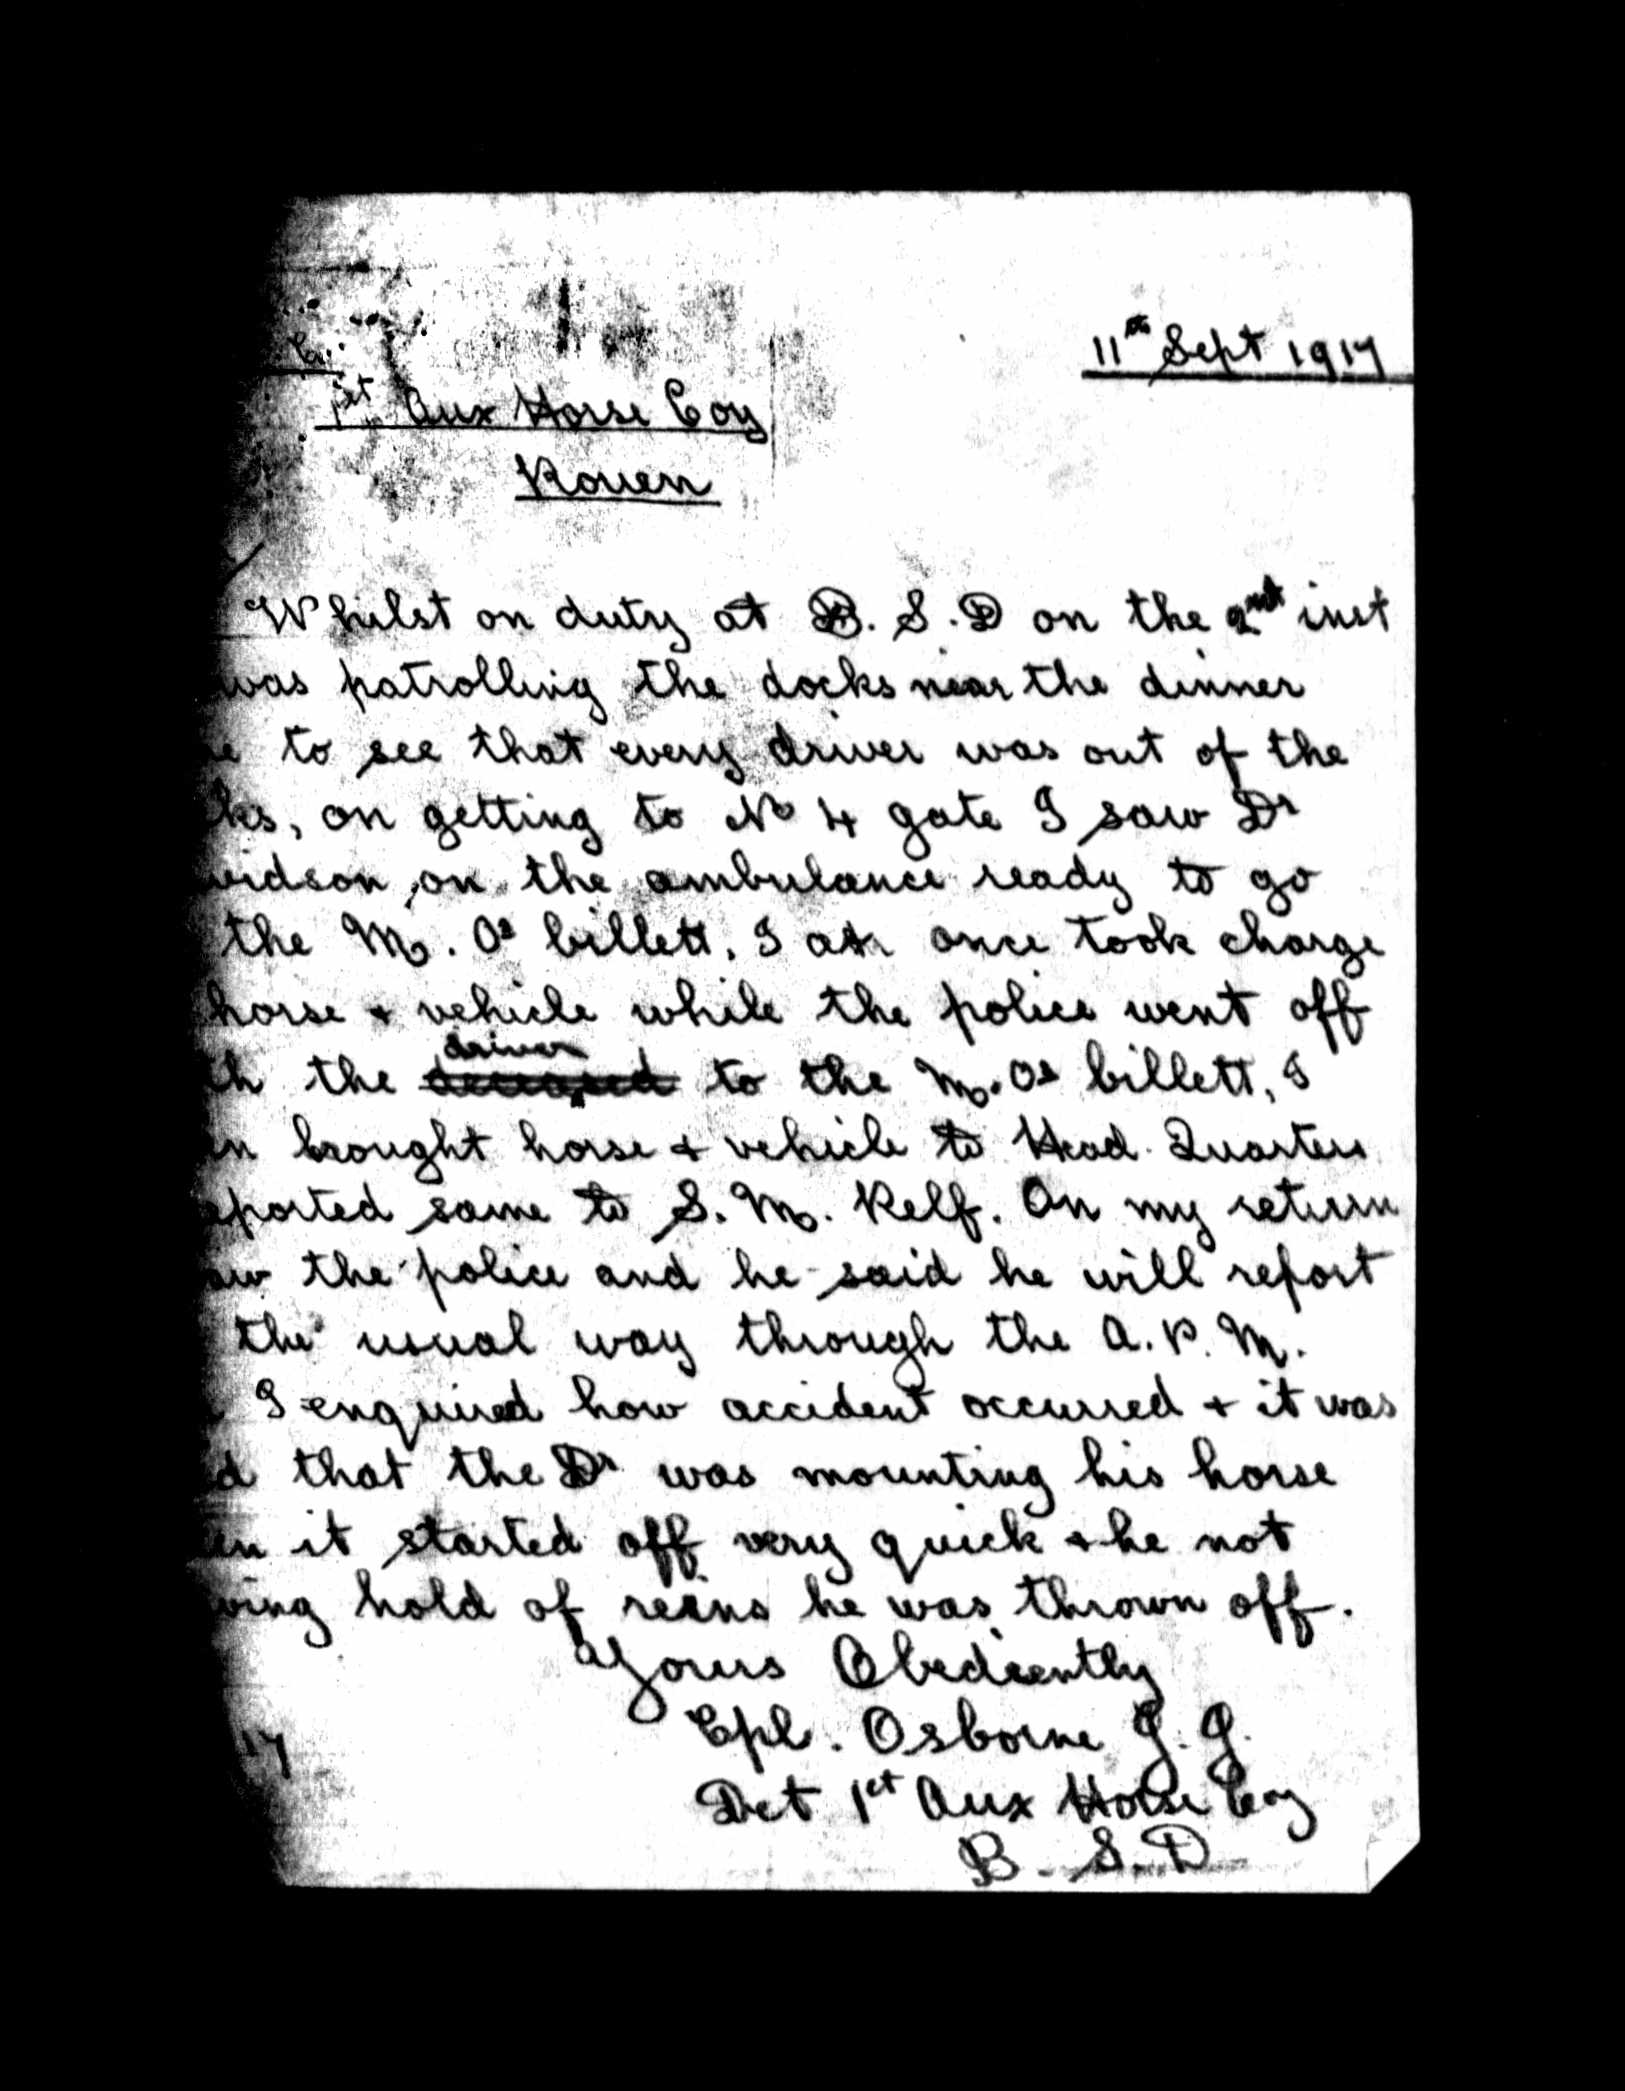 11th Sept 1917
1st Aux Horse Coy
Rouen
Whilst on duty at B. S. D on the 2nd inst
was patrolling the docks near the dinner
to see that every driver was out of the
ks, on getting to No 4 gate I saw Dr
vidson on the ambulance ready to go
the M. Os billett, I at once took charge
horse & vehicle while the police went off
th the driver to the M. Os billett, I
en brought horse & vehicle to Head Quarters
eported same to S. M. Relf. On my return
aw the police and he said he will report
the usual way through the A. P. M.
I enquired how accident occurred & it was
d that the Dr was mounting his horse
en it started off very quick & he not
ving hold of reins he was thrown off.
Yours Obediently
Cpl. Osborne G. G.
Det 1st Aux Horse Coy
B. S. D
17